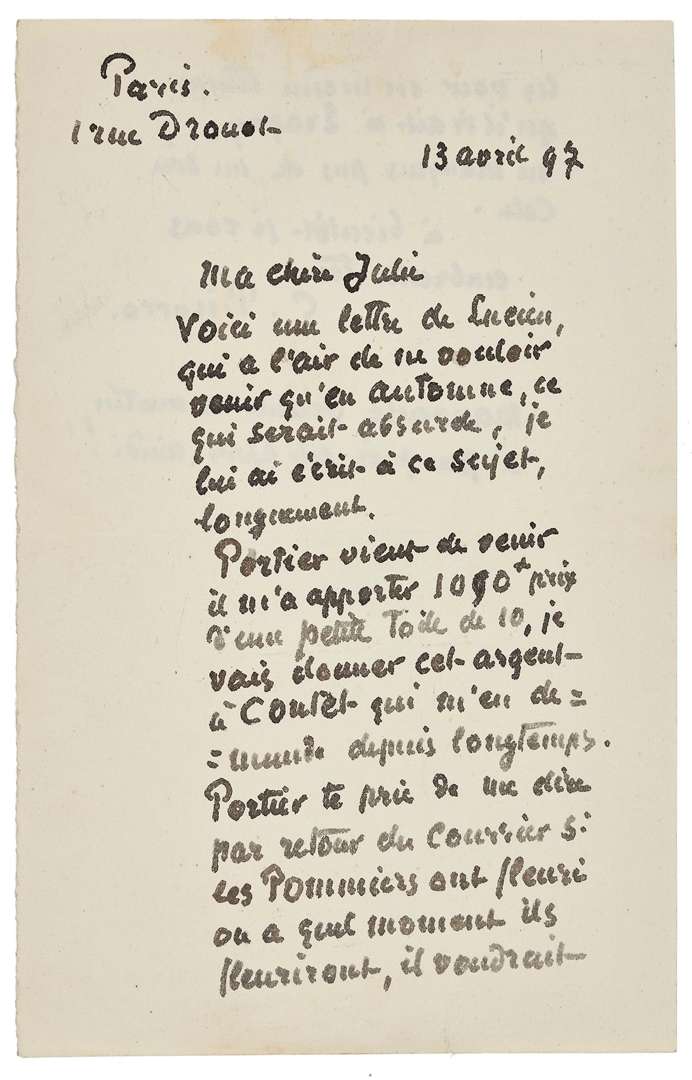 Paris.
1 rue Drouot
13 avril 97
Ma chère Julie
Voici une lettre de Lucien,
qui a l'air de ne vouloir
venir qu'en automne, ce
qui serait absurde, je
lui ai écrit à ce sujet,
longuement.
Portier vient de venir
il m'a apporter prix
d'une petite Toile de 10, je
vais donner cet argent
à Contet qui m'en de=
=mande depuis longtemps.
Portier te prie de me dire
par retour du Courrier si
les Pommiers ont fleuri
ou a quel moment ils
fleuriront, il voudrait